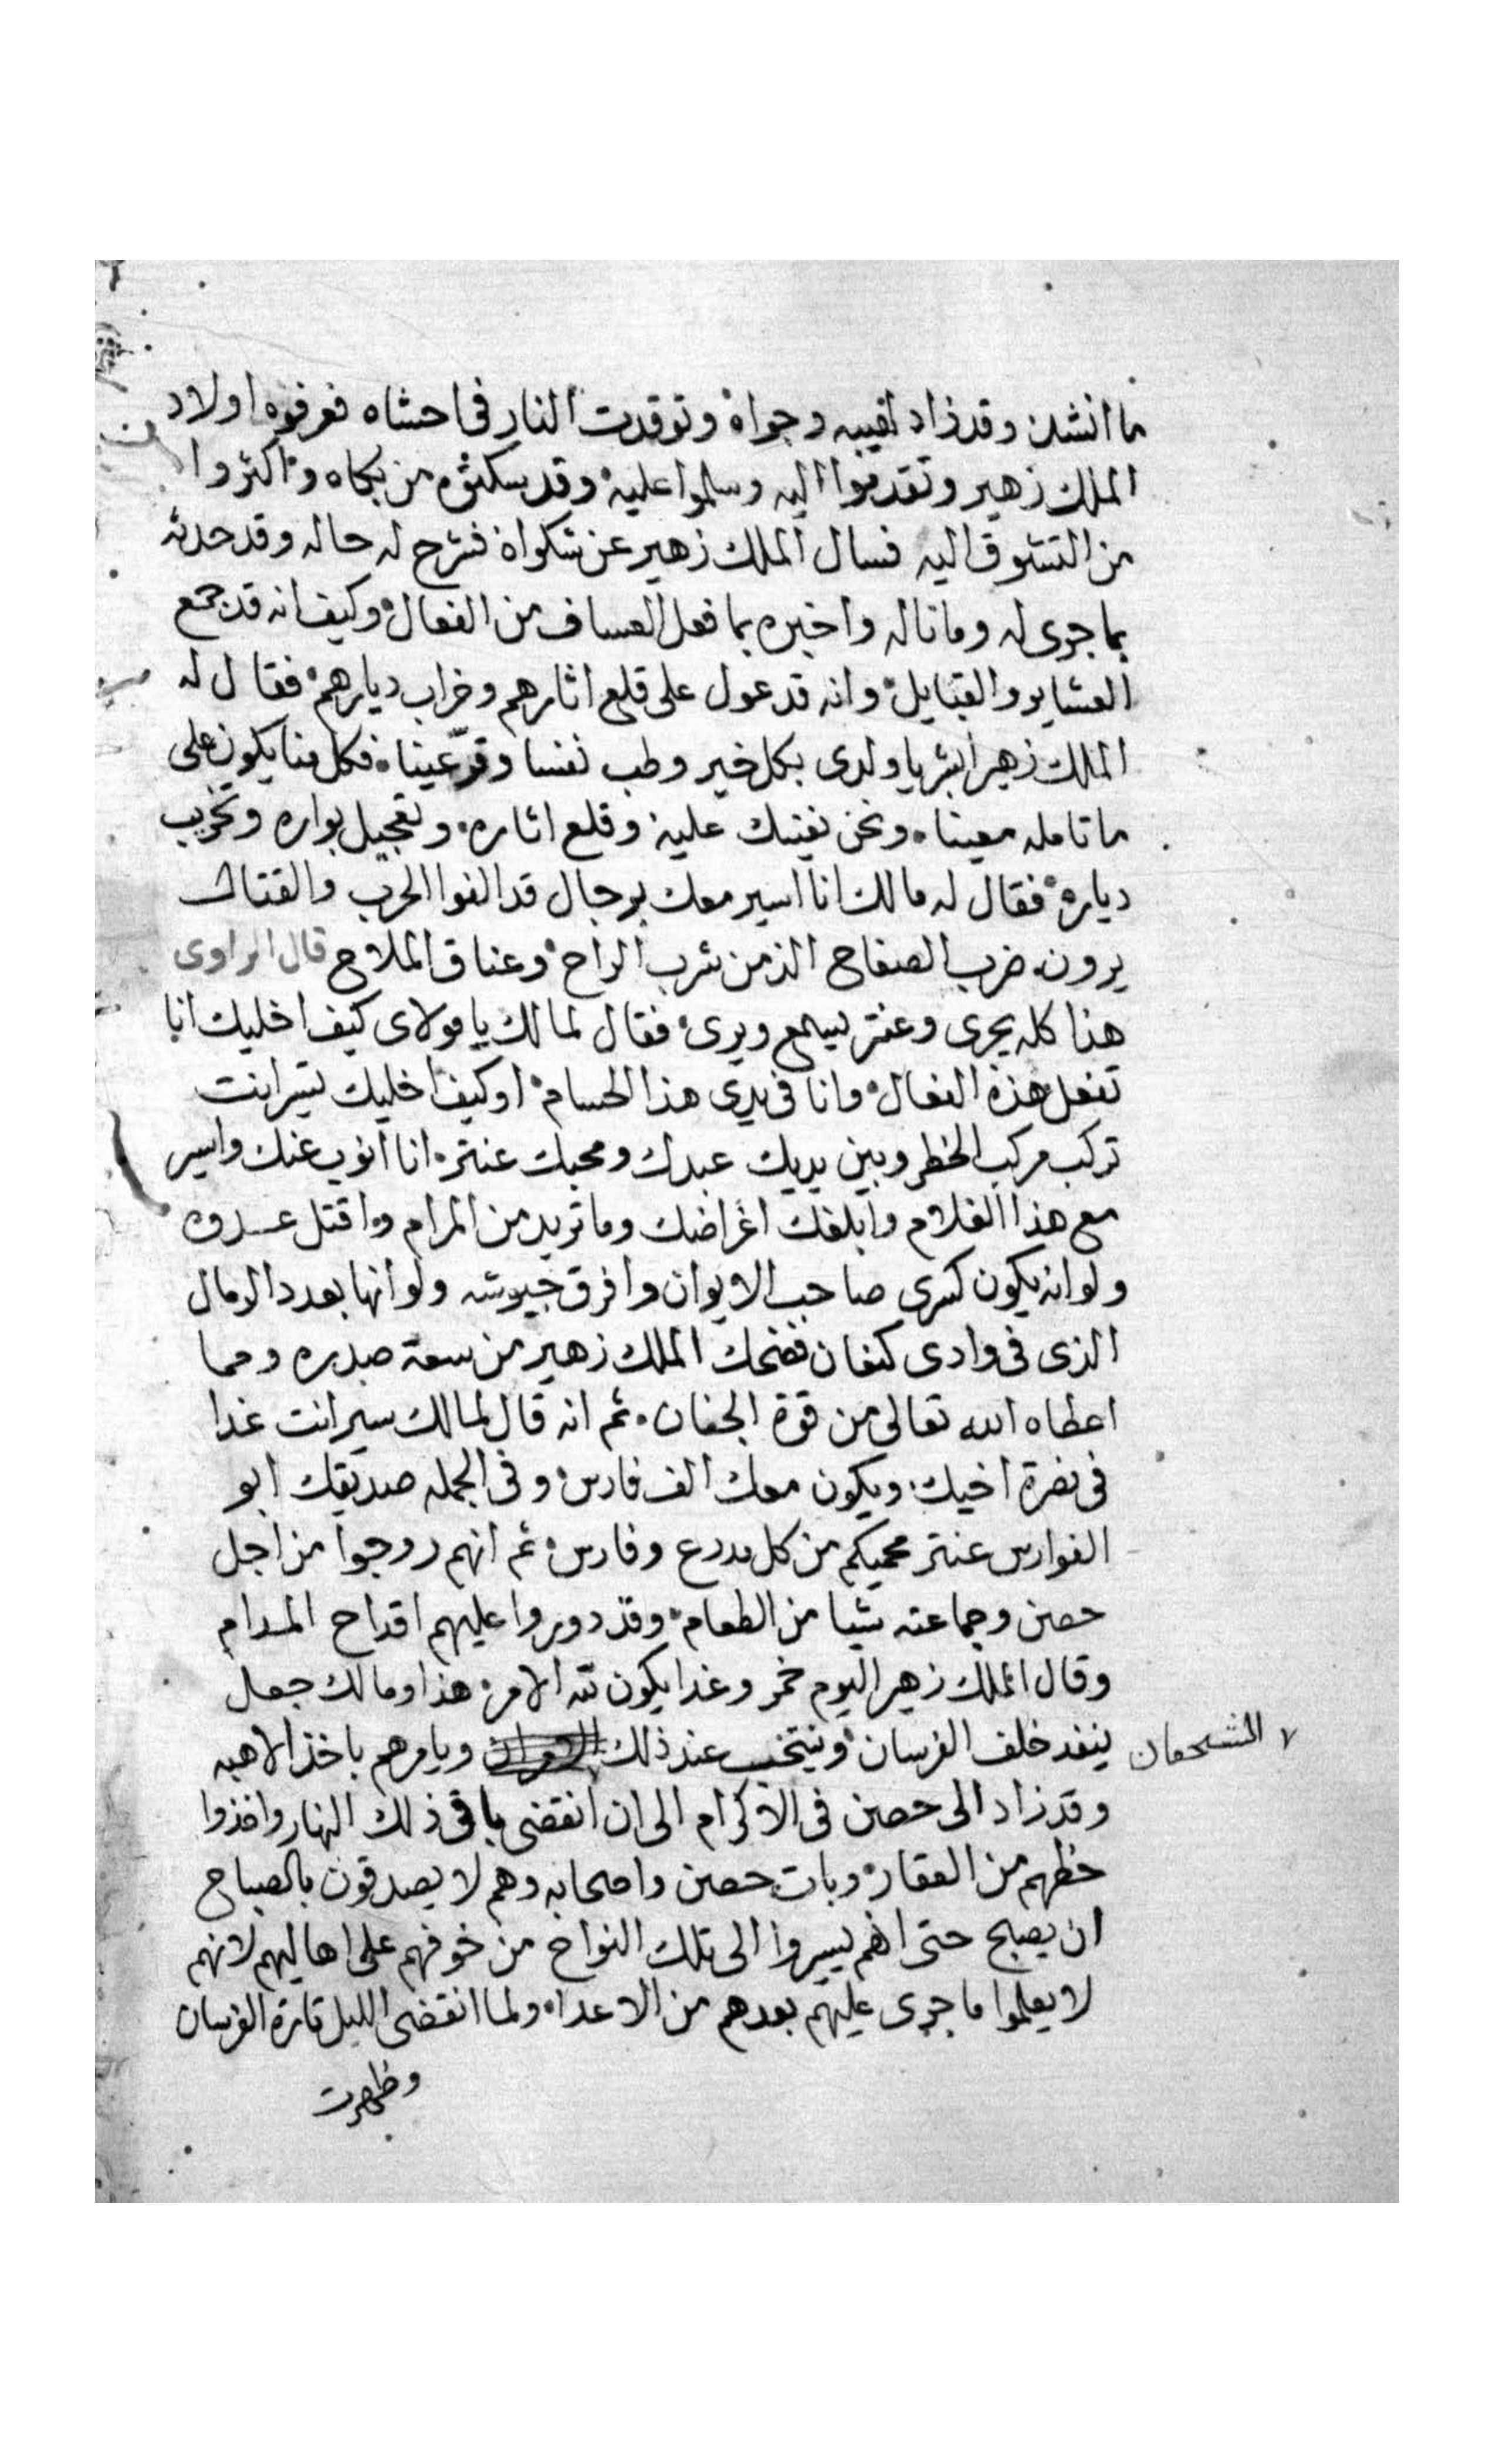 ما انشد وقد زاد لهيبه وجواه وتوقدت النار فى احشاه فعرفوه اولاد
الملك زهير وتقدموا اليه وسلموا عليه وقد سكتوه من بكاه واكثروا
من التشوق اليه فسال الملك زهير عن شكواه فشرح له حاله وقد حدثه
بما جرى له وما ناله واخبره بما فعل العساف من الفعال وكيف انه قد جمع
العشاير والقبايل وانه قد عول على قلع اثارهم وخراب ديارهم فقال له
الملك زهير ابشر يا ولدى بكل خير وطب نفسا وقرّ عينا فكل منا يكون على
ما تامله معينا ونحن نعينك عليه وقلع اثاره وتعجيل بواره وتخريب
دياره فقال له مالك انا اسير معك برجال قد الفوا الحرب والقتال
يرون ضرب الصفاح الذ من شرب الراح وعناق الملاح قال الراوى
هذا كله يجرى وعنتر يسمع ويرى فقال لمالك يا مولاى كيف اخليك انا
تفعل هذه الفعال وانا فى يدى هذا الحسام او كيف اخليك تسير انت
تركب مركب الخطر وبين يديك عبدك ومحبك عنتر انا انوب عنك واسير
مع هذا الغلام وابلغك اغراضك وما تريد من المرام واقتل عدوه
ولو انه يكون كسرى صاحب الايوان وافرق جيوشه ولو انها بعدد الرمال
الذى فى وادى كنعان فضحك الملك زهير من سعة صدره ومما
اعطاه الله تعالى من قوة الجنان ثم انه قال لمالك سير انت غدا
فى نصرة اخيك ويكون معك الف فارس وفى الجمله صديقك ابو
الفوارس عنتر يحميكم من كل مدرع وفارس ثم انهم روجوا من اجل
حصن وجماعته شيا من الطعام وقد دوروا عليهم اقداح المدام
وقال الملك زهير اليوم خمر وغدا يكون لله الامر هذا ومالك جعل
ينفد خلف الفرسان وينتخب عند ذلك الشجعان ويامرهم باخذ الاهبه
وقد زاد الى حصن فى الاكرام الى ان انقضى باقى ذلك النهار واخذوا
حظهم من العقار وبات حصن واصحابه وهم لا يصدقون بالصباح
ان يصبح حتى انهم يسيروا الى تلك النواح من خوفهم على اهاليهم لانهم
لا يعلموا ما جرى عليهم بعدهم من الاعداء ولما انقضى الليل تارة الفرسان
وظهرت